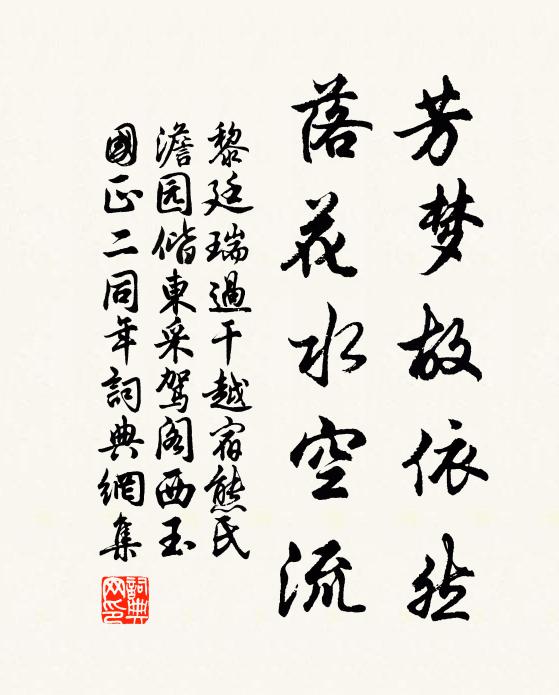 芳梦故依然
落花水空流
黎廷瑞過干越宿熊氏
澹园偕東采駕阁西玉
國正二同年詞典網集
詞典网印